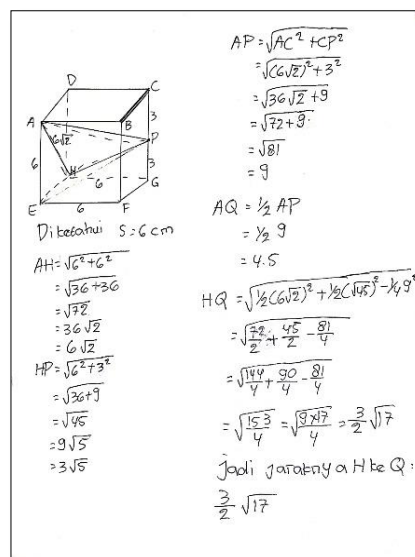 D
C
A
B
3
6√2
P
H
3
6
6
G
E
6
F
Diketahui S=6 cm
AH=√6²+6²
=√36+36
=√72
=36√2
=6√2
HP=√6²+3²
=√36+9
=√45
=9√5
=3√5
AP=√AC²+CP²
=√(6√2)²+3²
=√36√2+9
=√72+9
=√81
=9
AQ = ½ AP
= ½ 9
= 4.5
HQ=√½(6√2)²+½(√45)²-¼9²
=√72/2+45/2-81/4
=√144/4+90/4-81/4
=√153/4=√9×17/4=3/2√17
Jadi jaraknya H ke Q:
3/2 √17